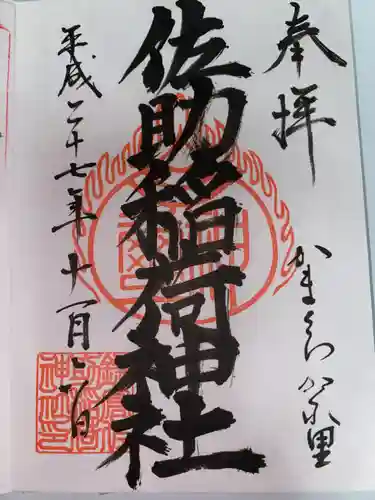 奉拝
かまくらかくれ里
佐助稲荷神社
平成二十七年十一月六日